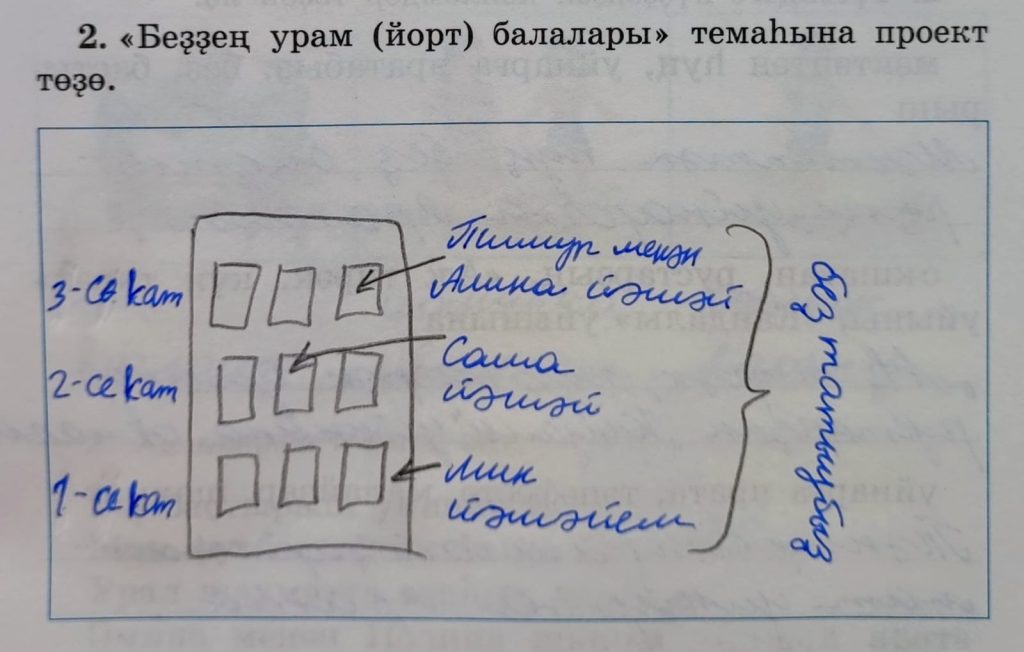 2. «Беҙҙең урам (йорт) балалары» темаһына проект
төҙө.
3-се кат
Тимур менән
Алина йәшәй
2-се кат
Саша
йәшәй
1-се кат
Мин
йәшәйем
беҙ татыубыҙ